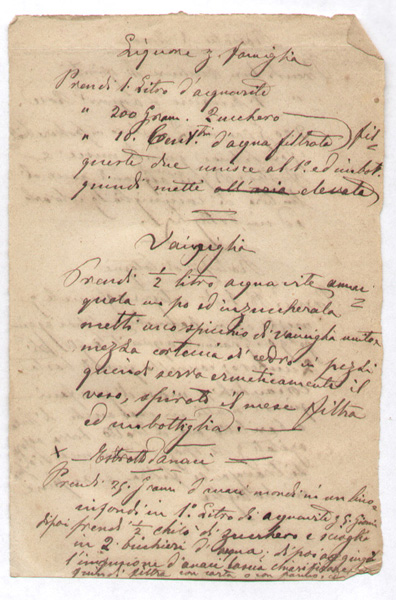 Liquore p. famiglia
Prendi 1. Litro d'acquavite
" 200 Gram. Zucchero
" 10. Cent.tri d'acqua filtrata fil=
queste due unisce al 1° ed imbot.
quindi metti all'aria elevata
Vainiglia
Prendi ½ litro acqua vite
quola un po ed inzuccherala
metti uno spicchio di vainiglia unito
mezza corteccia di cedro a pezzi
quindi serra ermeticamente il
vaso, spirato il mese filtra
ed imbottiglia.
X Estratto d'anaci
Prendi 25. Grami d'anaci mondi
infondi in 1° Litro di acquavite p. 5. Giorni
dipoi prendi ½ chilo di zucchero e sciogli
in 2. bichieri d'acqua; di poi aggiungi
l'infusione d'anaci lascia chiarificare e
quindi filtra con carta o con panno